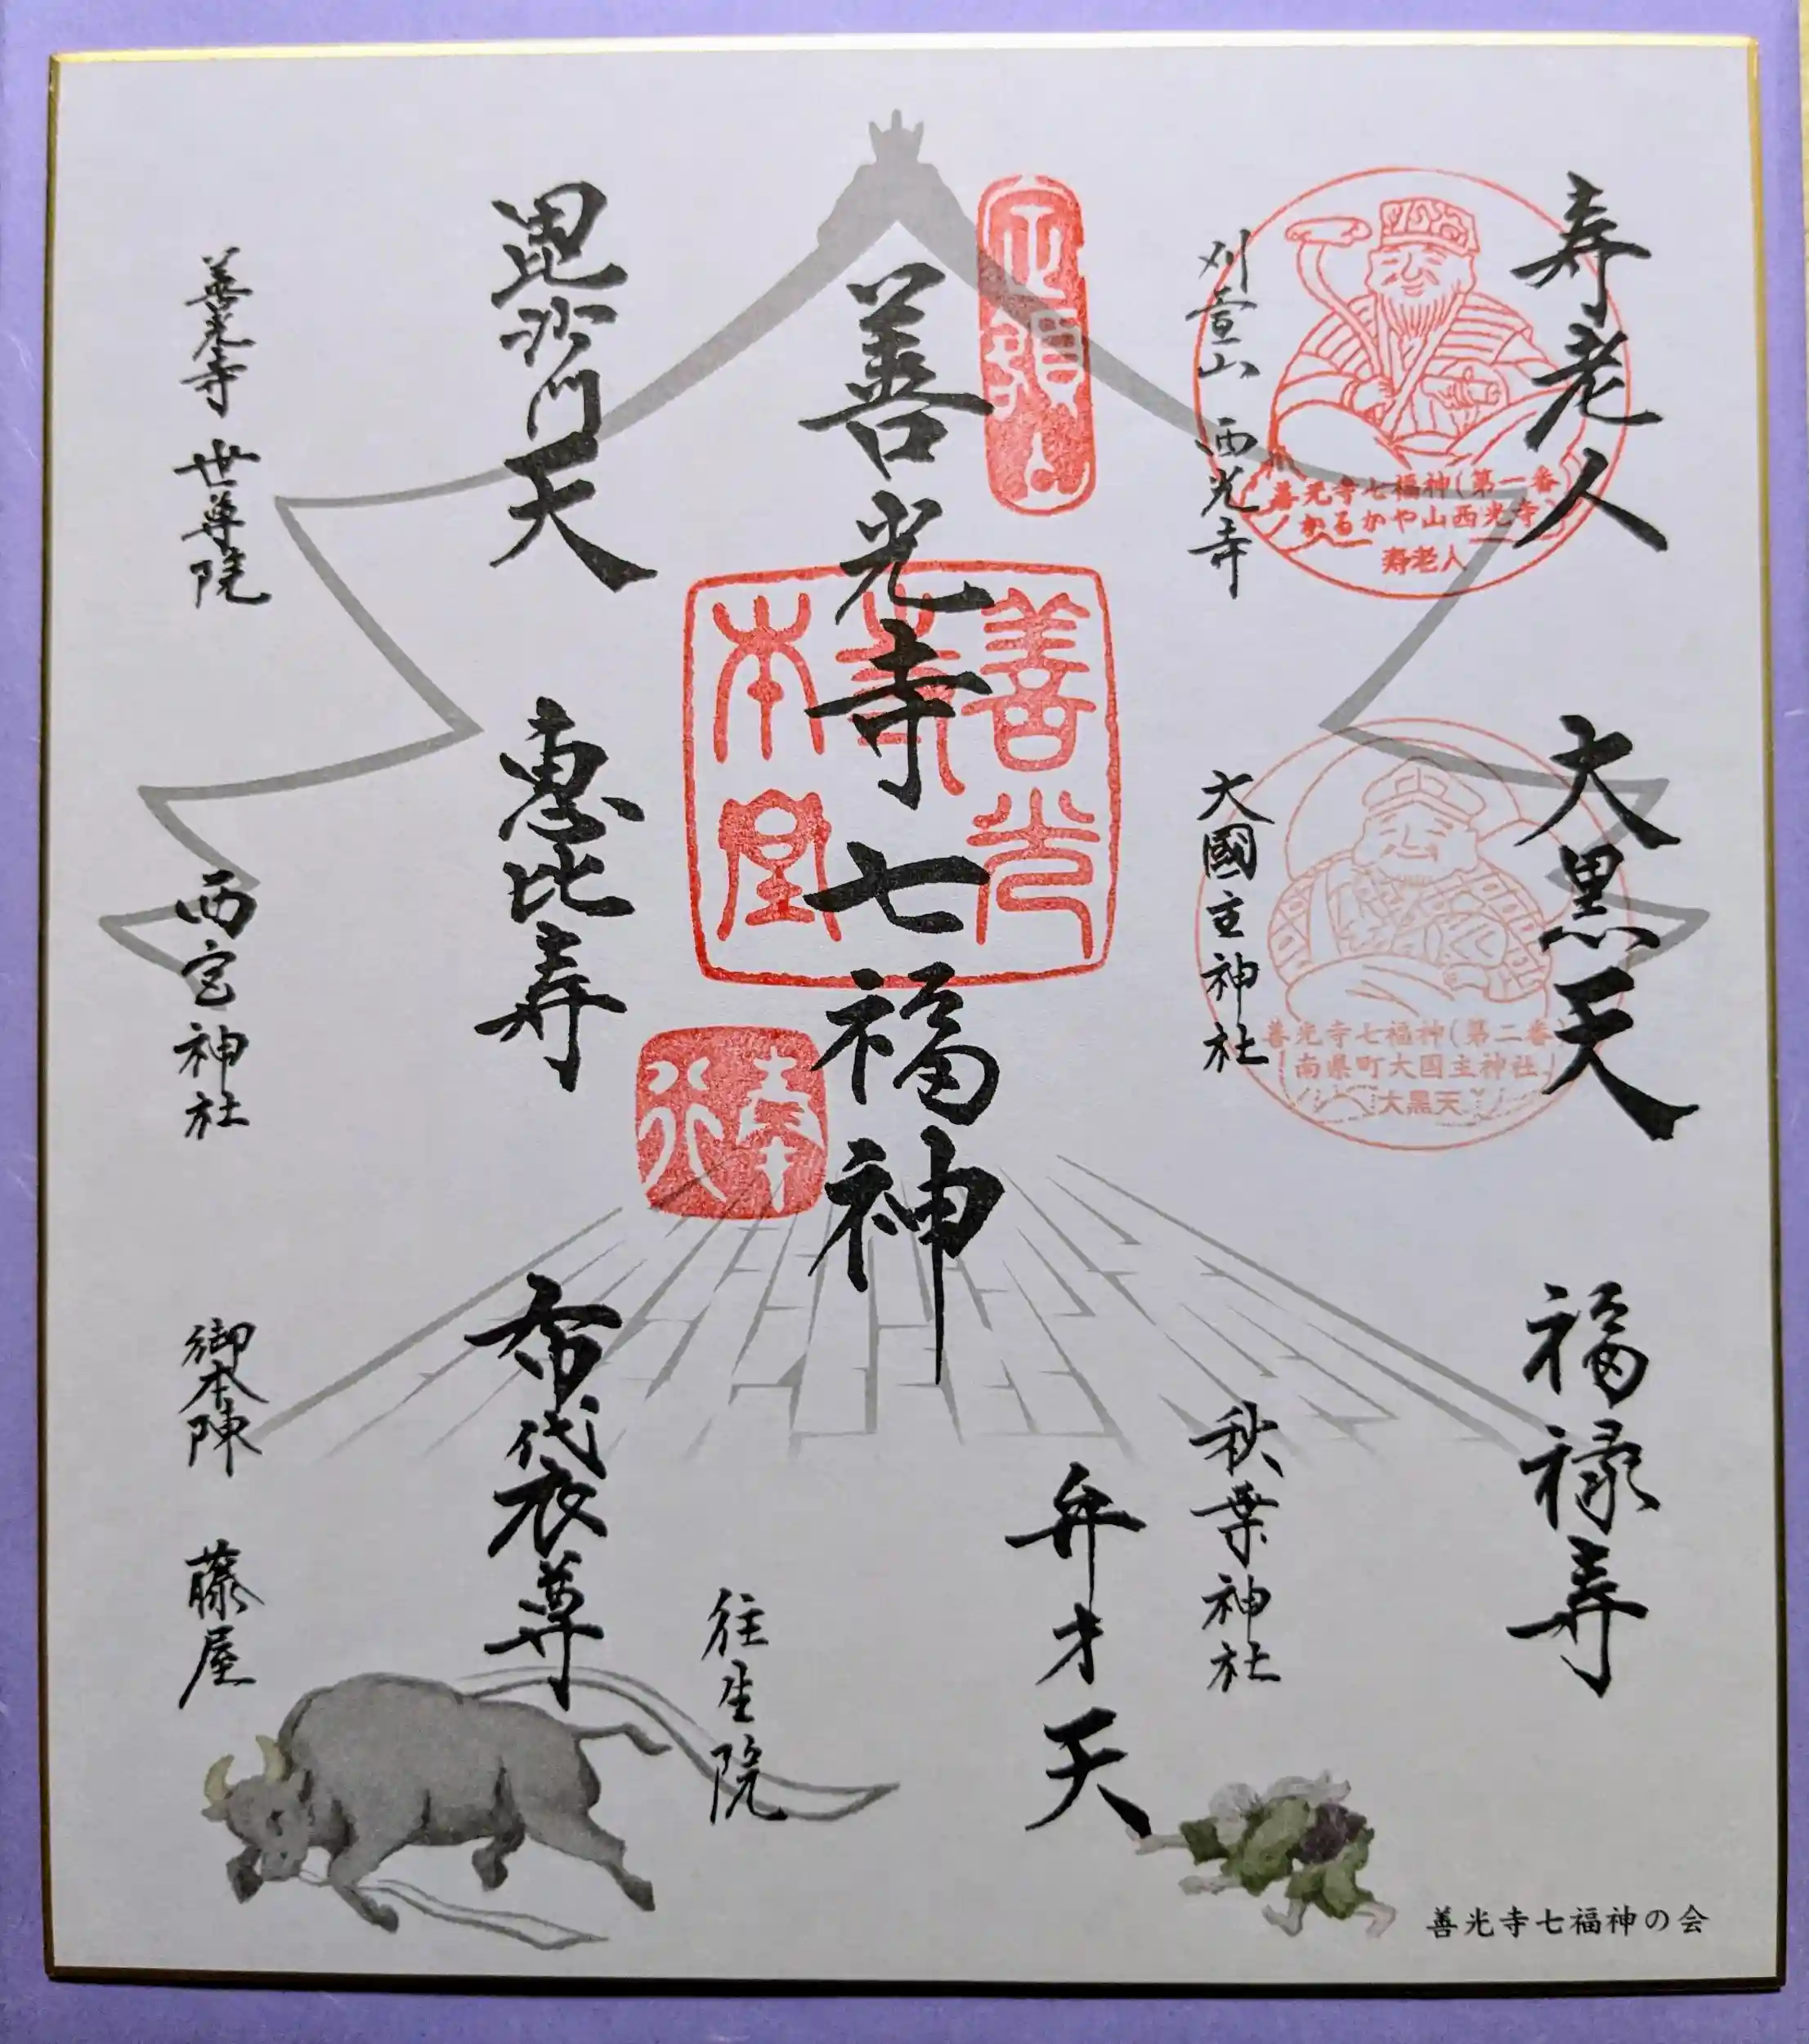 寿老人
善光寺七福神(第一番)
かるかや山西光寺
寿老人
刈萱山 西光寺
大黒天
善光寺七福神(第二番)
南県町大国主神社
大黒天
大國主神社
福禄寿
秋葉神社
弁才天
往生院
定額山
善光寺七福神
善光寺本堂
奉行
毘沙門天
善光寺 世尊院
恵比寿
西宮神社
布袋尊
御本陳 藤屋
善光寺七福神の会